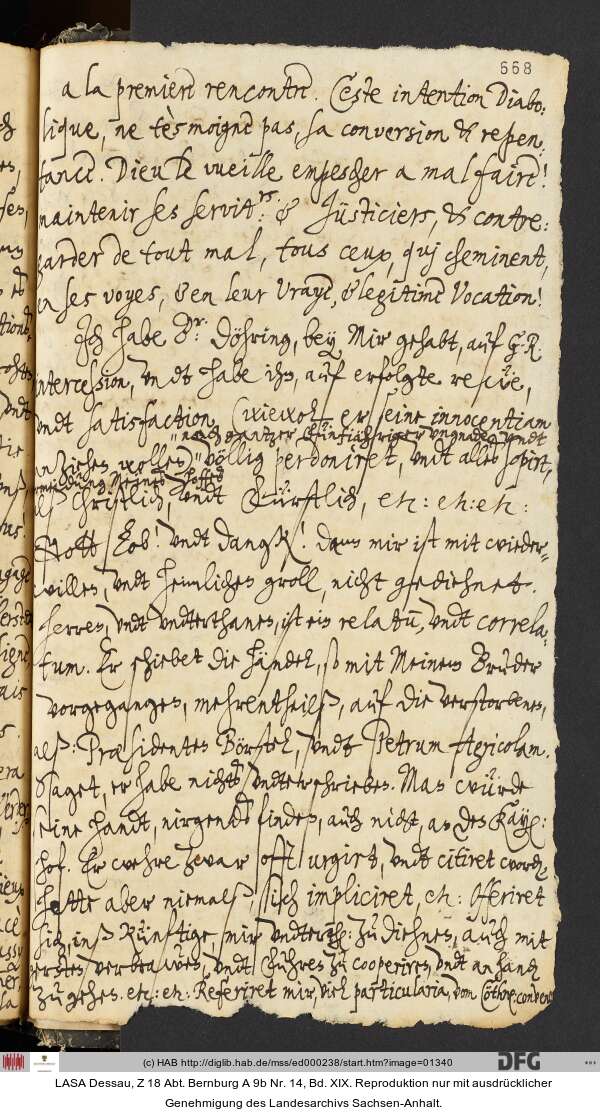 668
a la premiere rencontre. Ceste intention Diabo-
lique, ne tèsmoigne pas, sa conversion & repen-
tance. Dieu le vueille empescher a mal faire!
maintenir ses servit.rs & Justiciers, & contre-
garder de tout mal, tous ceux, qui cheminent,
en ses voyes, & en leur vraye, & legitime Vocation!
Ich habe Dr: Döhring, bey Mir gehabt, auf G. R.
intercession, undt habe ihn, auf erfolgte reſuè,
undt satisfaction, (wiewol er seine innocentiam
nach gantzer fünfjähriger ungnade, undt
anziehen wollen) völlig perdoniret, undt alles sopirt,
Meines
als Christlich, undt Fürstlich, etc: etc: etc:
Gott Lob! undt Dangk! dann mir ist mit wieder-
willen, undt heimlichen groll, nicht gediehnet.
Herren, undt undterthanen, ist ein relatum, undt correla-
tum. Er schiebet die händel, so mit Meinem Bruder
vorgegangen, mehrentheilß, auf die verstorbenen,
alß: Præsidenten Börstel, undt Petrum Agricolam.
Saget, er habe nichts undterschrieben. Man würde
seine handt, nirgends finden, auch nicht, an des Kayß:
hof. Er wehre zwar offt urgirt, undt citiret worden
hette aber niemalß, sich impliciret, etc: Offeriret
sich, inß künftige, mir undterth: zu diehnen, auch mit
verbrawen, undt Führen zu cooperiren, undt an handt
zu gehen. etc: etc: Referiret mir, viel particularia, vom Cöthn: convent
(c) HAB http://diglib.hab.de/mss/ed000238/start.htm?image=01340
DFG
LASA Dessau, Z 18 Abt. Bernburg A 9b Nr. 14, Bd. XIX. Reproduktion nur mit ausdrücklicher
Genehmigung des Landesarchivs Sachsen-Anhalt.